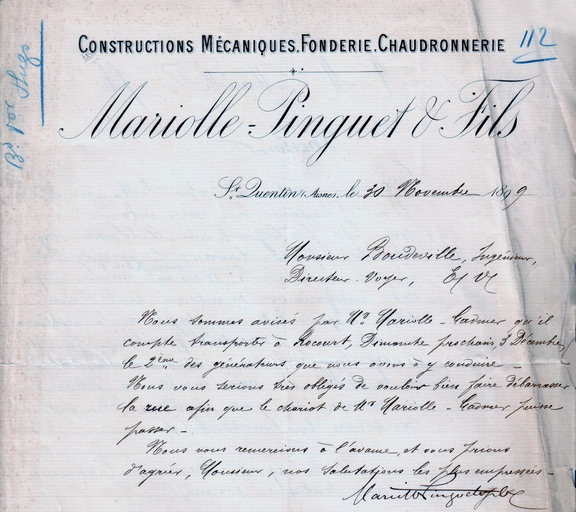 CONSTRUCTIONS MÉCANIQUES. FONDERIE. CHAUDRONNERIE
112
Mariolle-Pinguet & Fils
St. Quentin (Aisne), le 30 Novembre 1899
Monsieur Boudeville, Ingénieur,
Directeur-Voyer, E/V
Nous sommes avisés par Mr Mariolle-Cadmer qu'il
compte transporter à Rocourt, Dimanche prochain, 3 Décembre,
le 2ème des générateurs que nous avons à y conduire -
Nous vous serions très obligés de vouloir bien faire débarrasser
la rue afin que le chariot de Mr Mariolle-Cadmer puisse
passer -
Nous vous remercions à l'avance, et vous prions
d'agréer, Monsieur, nos salutations les plus empressées -